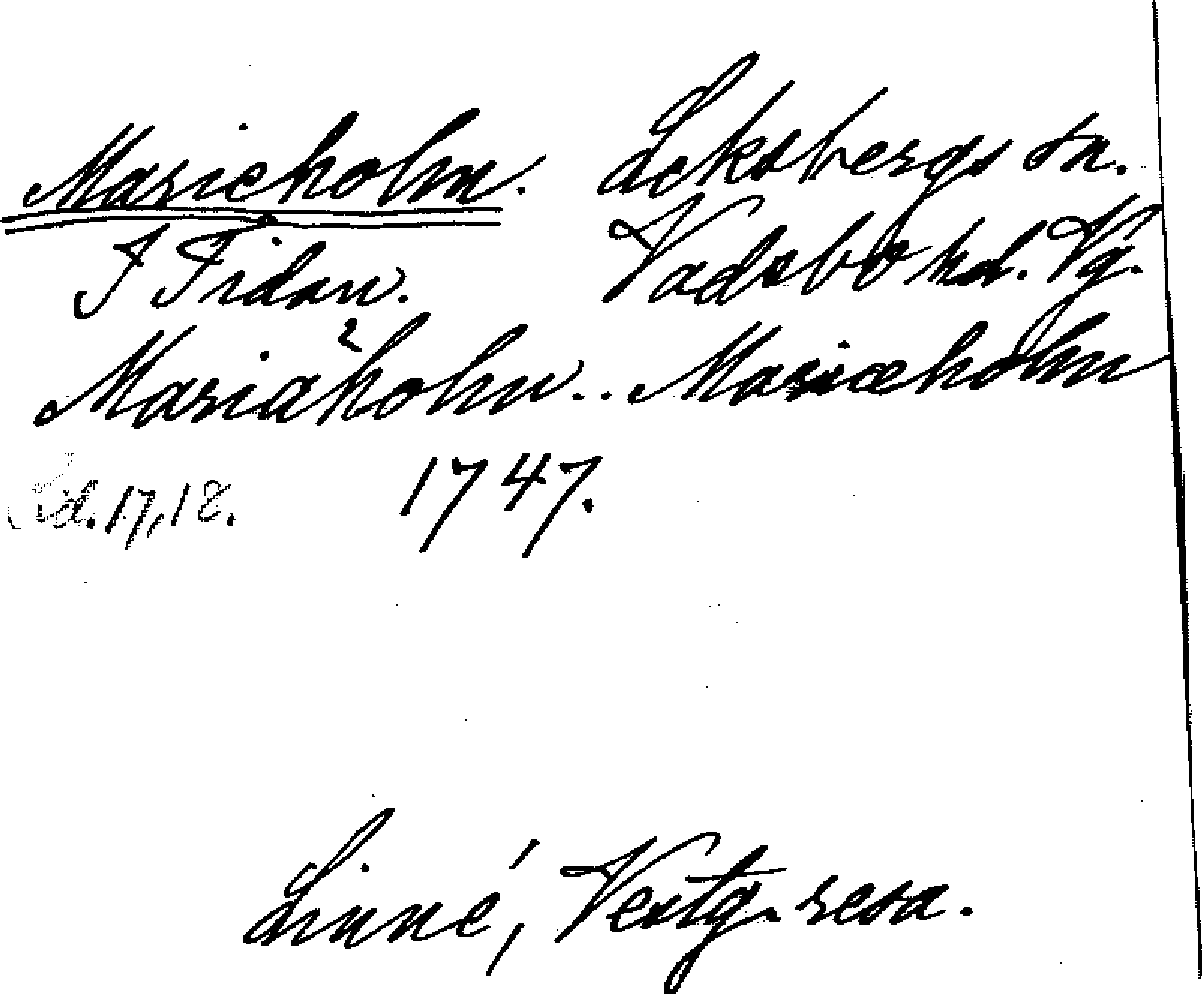 Marieholm. Leksbergs sn.
I Tidan. Vadsbo hd. Vg.
Mariæholm.. Mariæholm
Sid. 17, 18. 1747.
Linné, Vestg. resa.